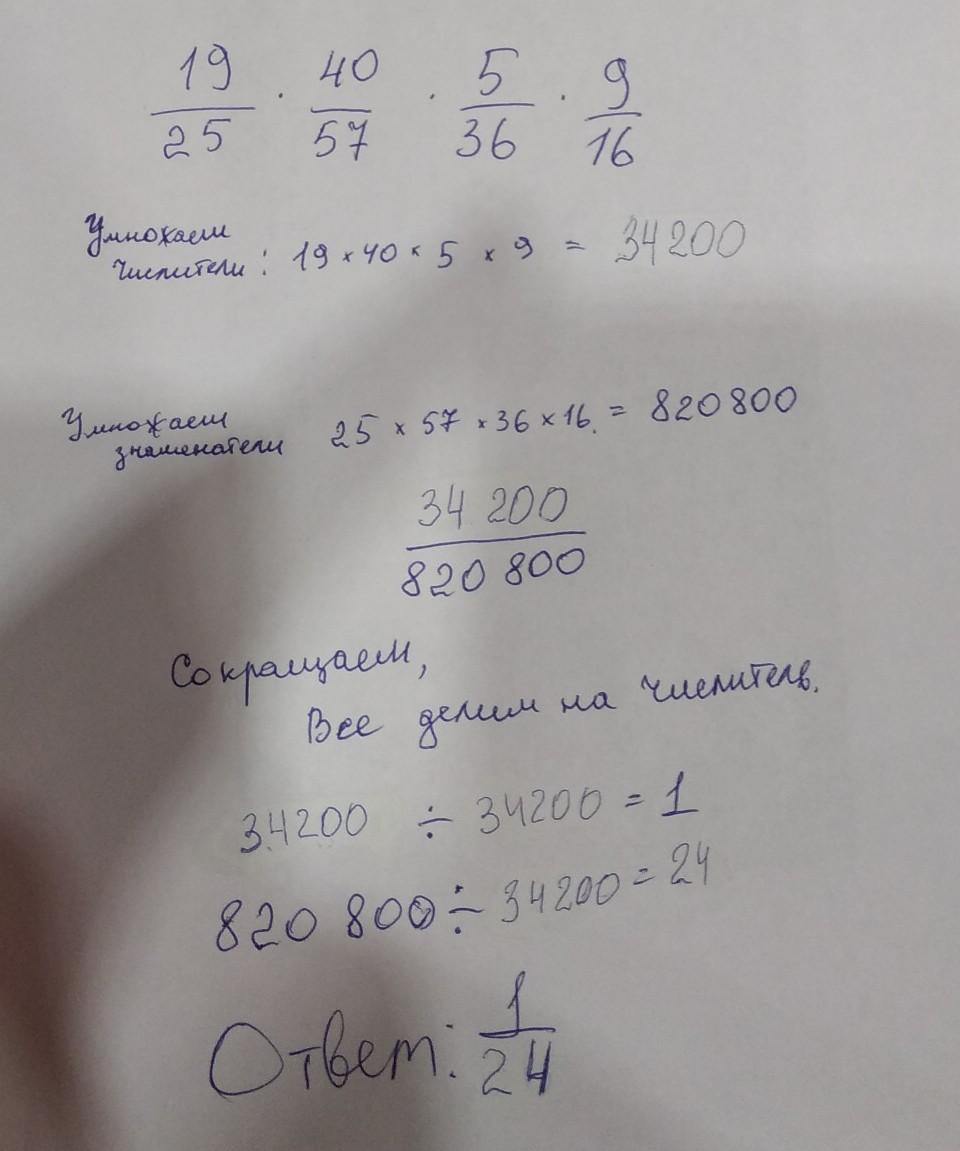 19/25 · 40/57 · 5/36 · 9/16
Умножаем
числители: 19 × 40 × 5 × 9 = 34200
Умножаем
знаменатели 25 × 57 × 36 × 16. = 820 800
34 200
820 800
Сокращаем,
Все делим на числитель.
34200 ÷ 34200 = 1
820 800 ÷ 34200 = 24
Ответ: 1/24